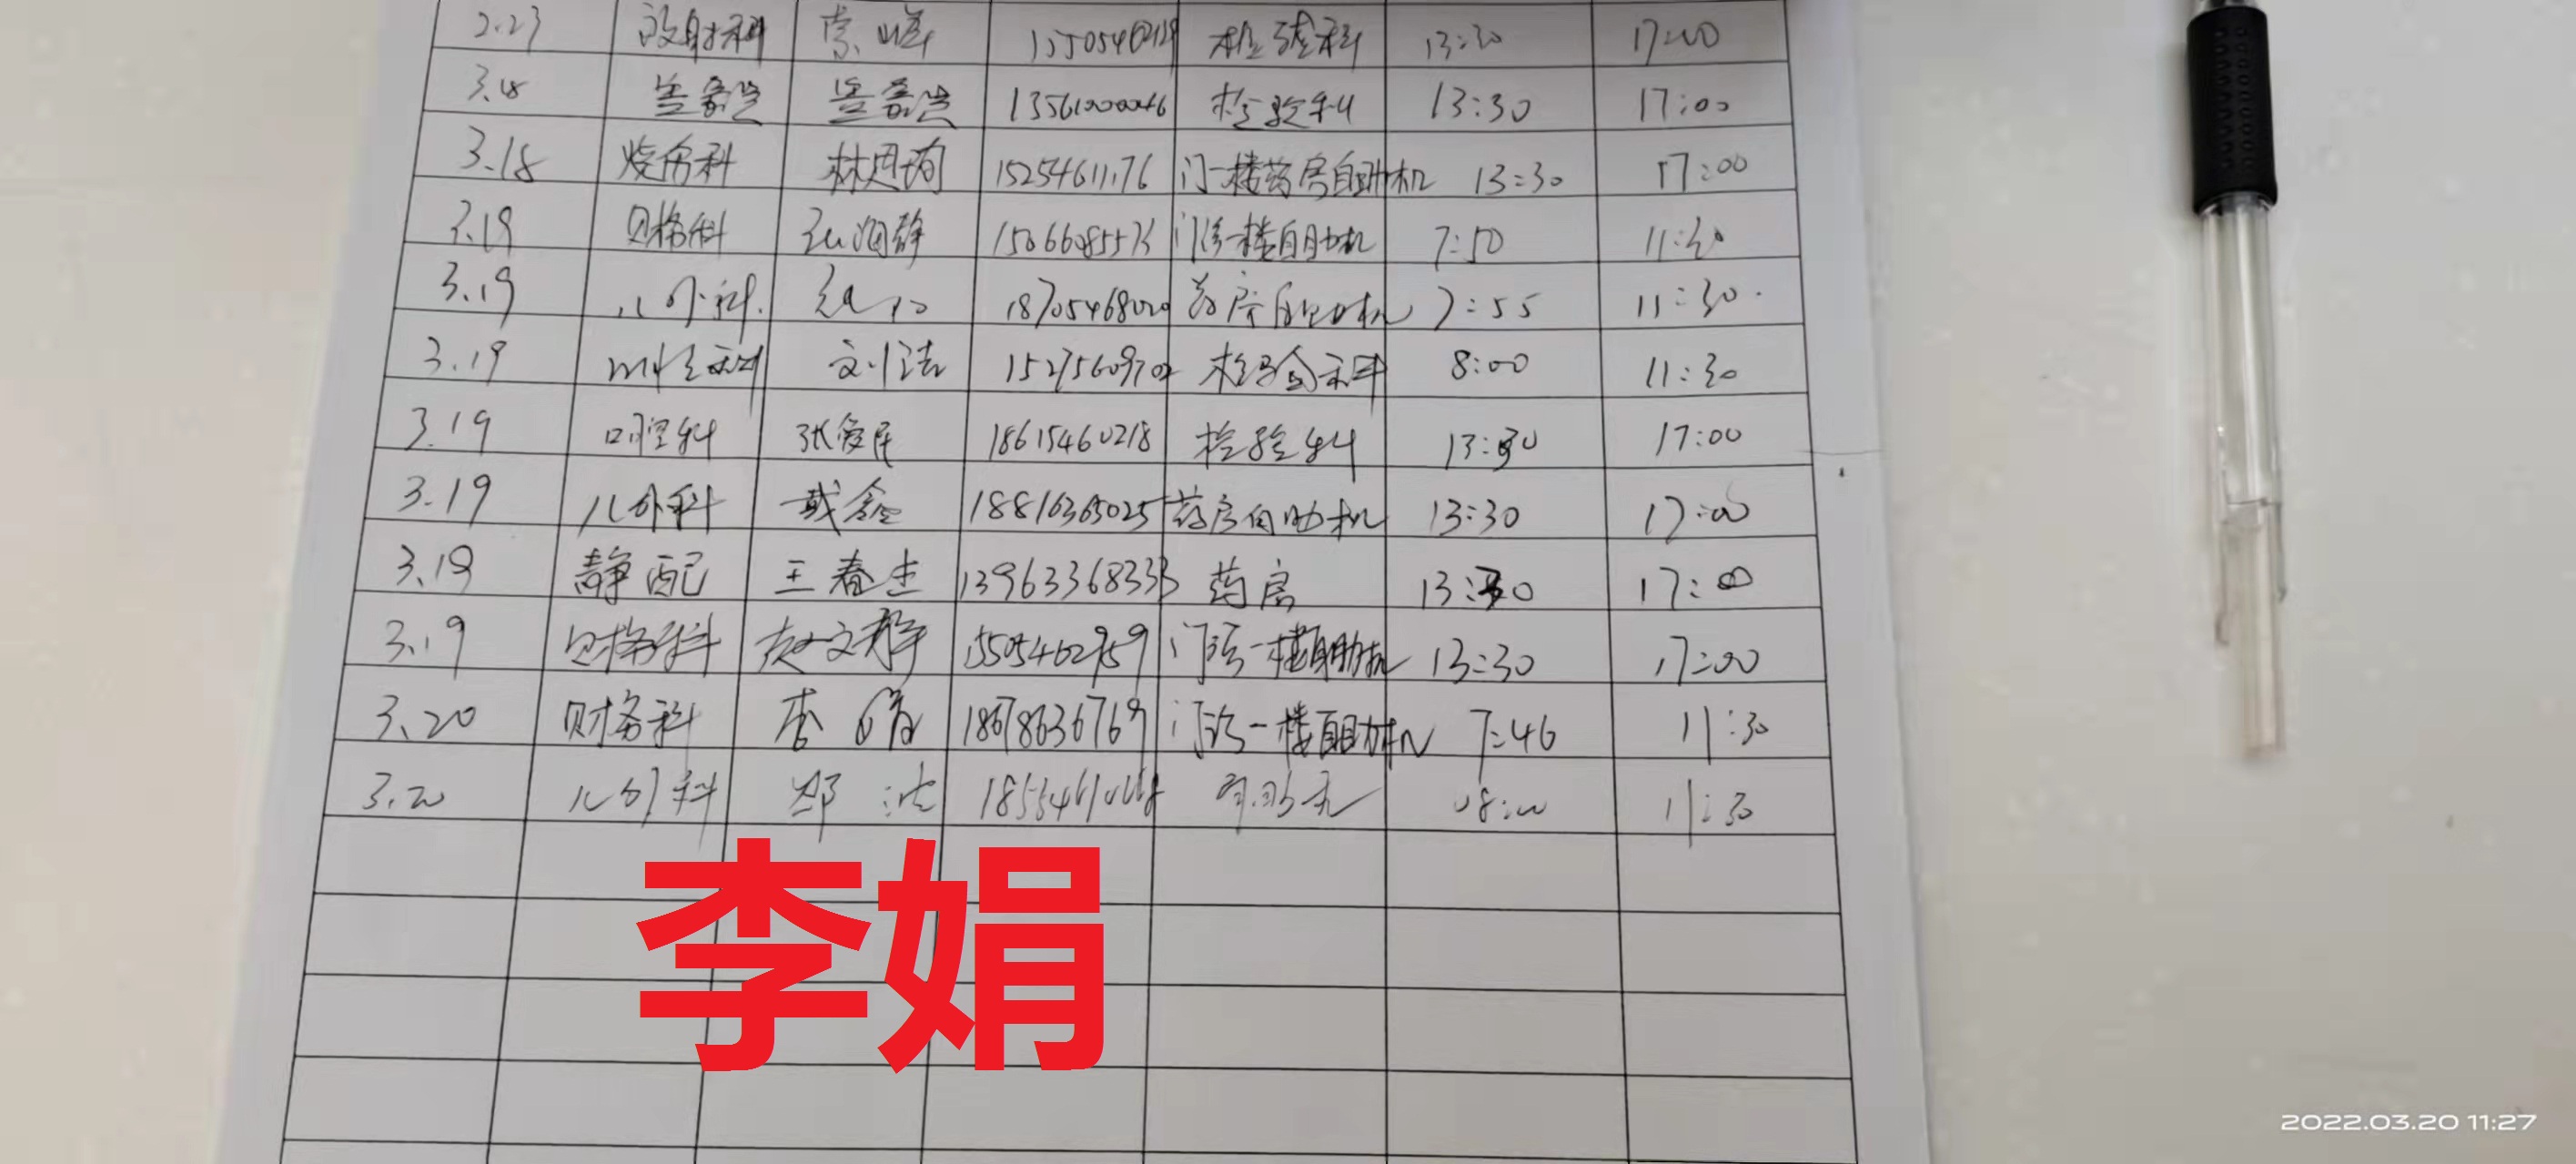 2.23 放射科 1550546 检验科 13:30 17:00
3.18 13561000046 检验科 13:30 17:00
3.18 烧伤科 林思珣 15254611176 门一楼药房自助机 13:30 17:00
3.19 财务科 15066085573 门诊一楼自助机 7:50 11:30
3.19 儿外科 18705468020 药房自助机 7:55 11:30
3.19 刘洁 15275609702 检验科 8:00 11:30
3.19 口腔科 张俊民 18615460218 检验科 13:30 17:00
3.19 儿外科 戴鑫 18816365025 药房自助机 13:30 17:00
3.19 静配 王春生 13963368333 药房 13:30 17:00
3.19 财务科 赵文静 15505462959 门诊一楼自助机 13:30 17:00
3.20 财务科 李 18678636769 门诊一楼自助机 7:46 11:30
3.20 儿外科 郑 08:00 11:30
李娟
2022.03.20 11:27